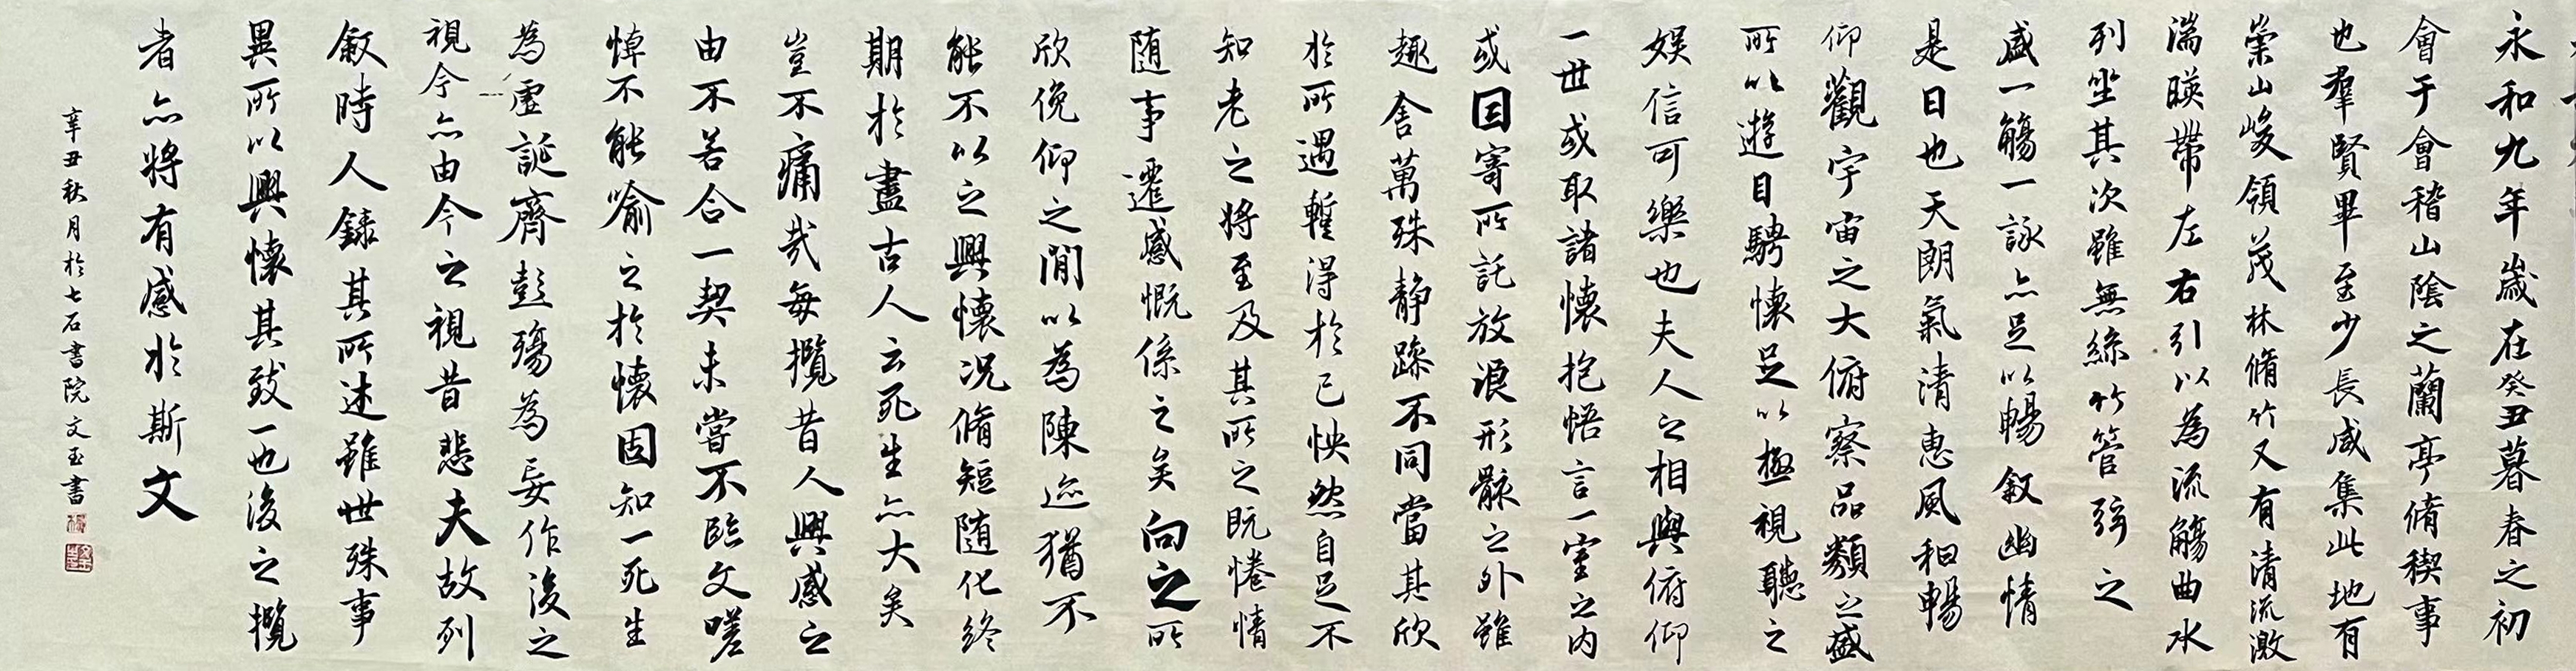 永和九年歲在癸丑暮春之初
會于會稽山陰之蘭亭脩稧事
也羣賢畢至少長咸集此地有
崇山峻領茂林脩竹又有清流激
湍暎帶左右引以為流觴曲水
列坐其次雖無絲竹管弦之
盛一觴一詠亦足以暢叙幽情
是日也天朗氣清惠風和暢
仰觀宇宙之大俯察品類之盛
所以遊目騁懷足以極視聽之
娛信可樂也夫人之相與俯仰
一世或取諸懷抱悟言一室之内
或因寄所託放浪形骸之外雖
趣舍萬殊静躁不同當其欣
於所遇暫得於己怏然自足不
知老之將至及其所之既惓情
随事遷感慨係之矣向之所
欣俛仰之閒以為陳迹猶不
能不以之興懷况脩短随化終
期於盡古人云死生亦大矣
豈不痛哉每攬昔人興感之
由不若合一契未嘗不臨文嗟
悼不能喻之於懷固知一死生
為虛誕齊彭殤為妄作後之
視今亦由今之視昔悲夫故列
叙時人錄其所述雖世殊事
異所以興懷其致一也後之攬
者亦將有感於斯文
辛丑秋月於七石書院文玉書